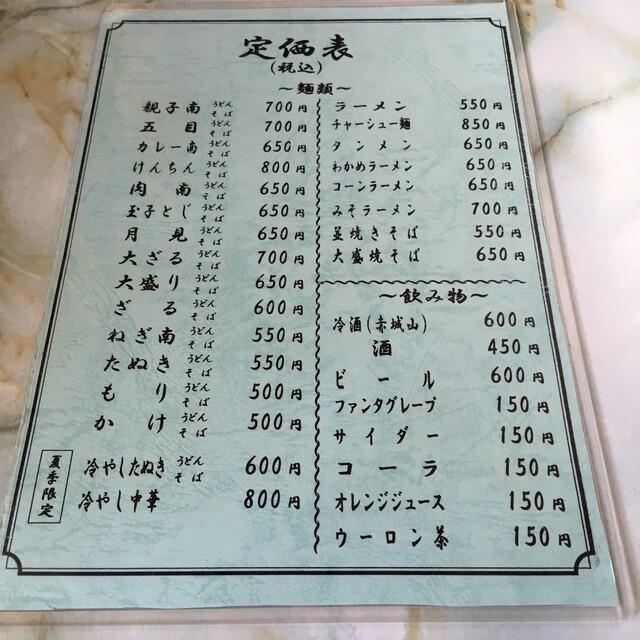 定価表
(税込)
～麺類～
親子南 うどん そば 700円
五目 うどん そば 700円
カレー南 うどん そば 650円
けんちん うどん そば 800円
肉南 うどん そば 650円
玉子とじ うどん そば 650円
月見 うどん そば 650円
大ざる うどん そば 700円
大盛り うどん そば 650円
ざる うどん そば 600円
ねぎ南 うどん そば 550円
たぬき うどん そば 550円
もり うどん そば 500円
かけ うどん そば 500円
夏季限定
冷やしたぬき うどん そば 600円
冷やし中華 800円
ラーメン 550円
チャーシュー麺 850円
タンメン 650円
わかめラーメン 650円
コーンラーメン 650円
みそラーメン 700円
並焼きそば 550円
大盛焼そば 650円
～飲み物～
冷酒(赤城山) 600円
酒 450円
ビール 600円
ファンタグレープ 150円
サイダー 150円
コーラ 150円
オレンジジュース 150円
ウーロン茶 150円